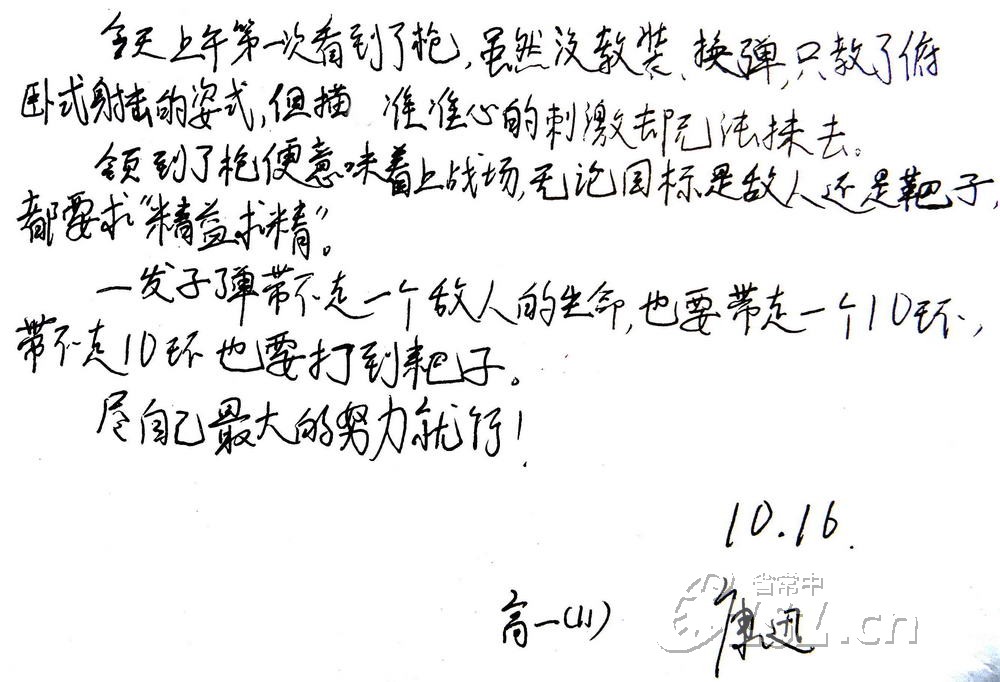 今天上午第一次看到了枪,虽然没教装、换弹,只教了俯
卧式射击的姿式,但描 准准心的刺激却无法抹去。
领到了枪便意味着上战场,无论目标是敌人还是靶子,
都要求“精益求精”。
一发子弹带不走一个敌人的生命,也要带走一个10环,
带不走10环也要打到靶子。
尽自己最大的努力就行!
10.16.
省常中
.cn
高一(11) 康迅